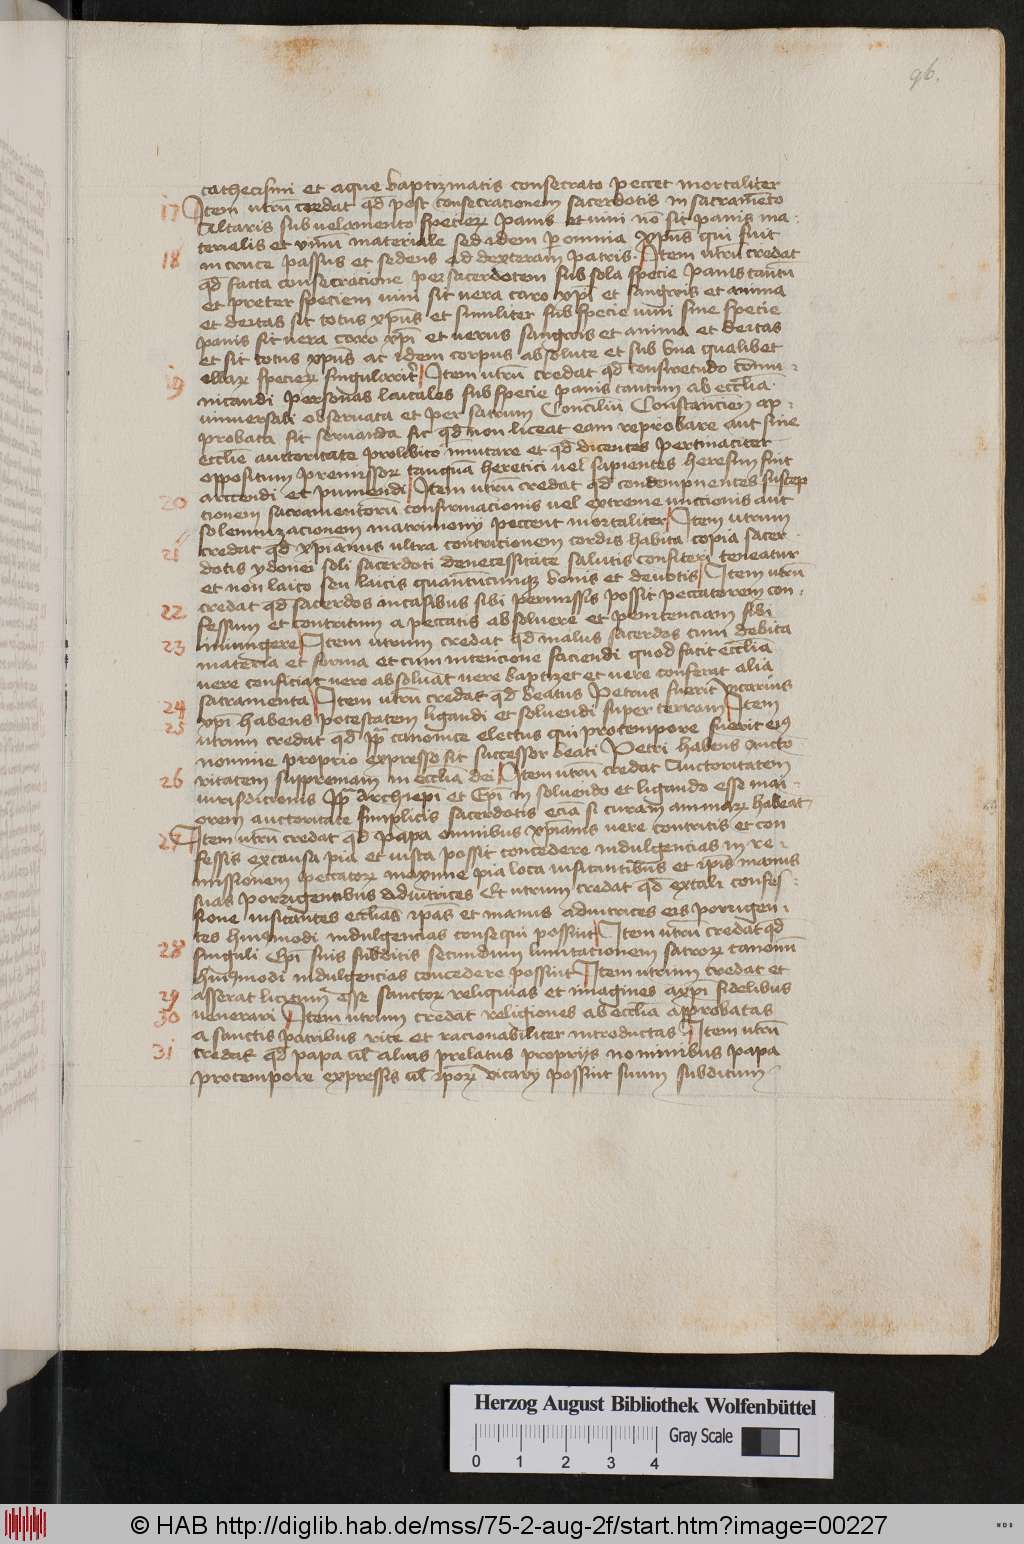 96.
cathecismi et aque baptizmatis consecrato peccet mortaliter
17 Item utrũ credat qd post consecracionem sacerdotis in sacramẽto
Altaris sub velamento specierꝝ panis et vini nõ sit panis ma-
terialis et vinũ materiale sed idem p omnia xp̃us qui fuit
18 in cruce passus et sedens ad dexteram patris. Item utrũ credat
qd facta consecracione per sacerdotem sub sola specie panis tantũ
et preter speciem vini sit vera caro xp̃i et sangwis et anima
et deitas sit totus xp̃us et similiter sub specie vini sine specie
panis sit vera caro xp̃i et verus sangwis et anima et deitas
et sit totus xp̃us ac idem corpus absolute et sub una qualibet
19 illarꝝ specierꝝ singulariter Item utrũ credat qd conswetudo cõmu-
nicandi personas laicales sub specie panis tantum ab ecclĩa
universali observata et per sacrum Conciliũ Constancieñ ap-
probata sit servanda sic qd non liceat eam reprobare aut sine
ecclĩe auctoritate prolibito immutare et qd dicentes pertinaciter
oppositum premissorꝝ tanquã heretici vel sapientes heresim sint
20 arcendi et puniendi Item utrũ credat qd condempnentes suscep
cionem sacramentorũ confirmacionis vel extreme unctionis aut
solemnizacionem matrimonij peccent mortaliter Item utrum
21 credat qd xp̃ianus ultra contricionem cordis habita copia sacer-
dotis ydonei soli sacerdoti denecessitate salutis confiteri teneatur
et non laico seu laicis quantũcumqꝫ bonis et devotis Item utrũ
22 credat qd sacerdos incasibus sibi permissis possit peccatorem con-
fessum et contritum a peccatis absolvere et penitenciam sibi
23 iniungere Item utrum credat qd malus sacerdos cum debita
materia et forma et cum intencione faciendi quod facit ecclĩa
vere conficiat vere absolvat vere baptizet et vere conferat alia
24 sacramenta Item utrũ credat qd beatus Petrus fuerit vicarius
25 xp̃i habens potestatem ligandi et solvendi super terram Item
utrum credat qd pp̃ canonice electus qui protempore fuerit eiꝰ
nomine proprio expresso sit successor beati Petri habens Aucto-
26 ritatem suppremam in ecclĩa dei Item utrũ credat Auctoritatem
iurisdictionis pp̃ Archiep̃i et Ep̃i in solvendo et ligando esse mai-
orem auctoritate simplicis sacerdotis eciã si curam animarꝝ habeat
27 Item utrũ credat qd papa omnibus xp̃ianis vere contritis et con
fessis excausa pia et iusta possit concedere indulgencias in re-
missionem peccatorꝝ maxime pia loca visitantibus et ip̃is manus
suas porrigentibus adiutrices Et utrum credat qd extali conces-
sione visitantes ecclĩas ip̃as et manus adiutrices eis porrigen-
tes huiusmodi indulgencias consequi possint Item utrũ credat qd
28 singuli Ep̃i suis subditis secundum limitacionem sacrorꝝ canonũ
huiusmodi indulgencias concedere possint Item utrum credat et
29 asserat licitum esse sanctorꝝ reliquias et imagines axp̃i fidelibus
30 venerari Item utrum credat religiones ab ecclĩa approbatas
a sanctis patribus rite et racionabiliter introductas Item utrũ
31 credat qd papa vel alius prelatus proprijs nominibus papa
protempore expressis vel ip̃orꝝ vicarij possint suum subditum
Herzog August Bibliothek Wolfenbüttel
0 1 2 3 4
Gray Scale
© HAB http://diglib.hab.de/mss/75-2-aug-2f/start.htm?image=00227